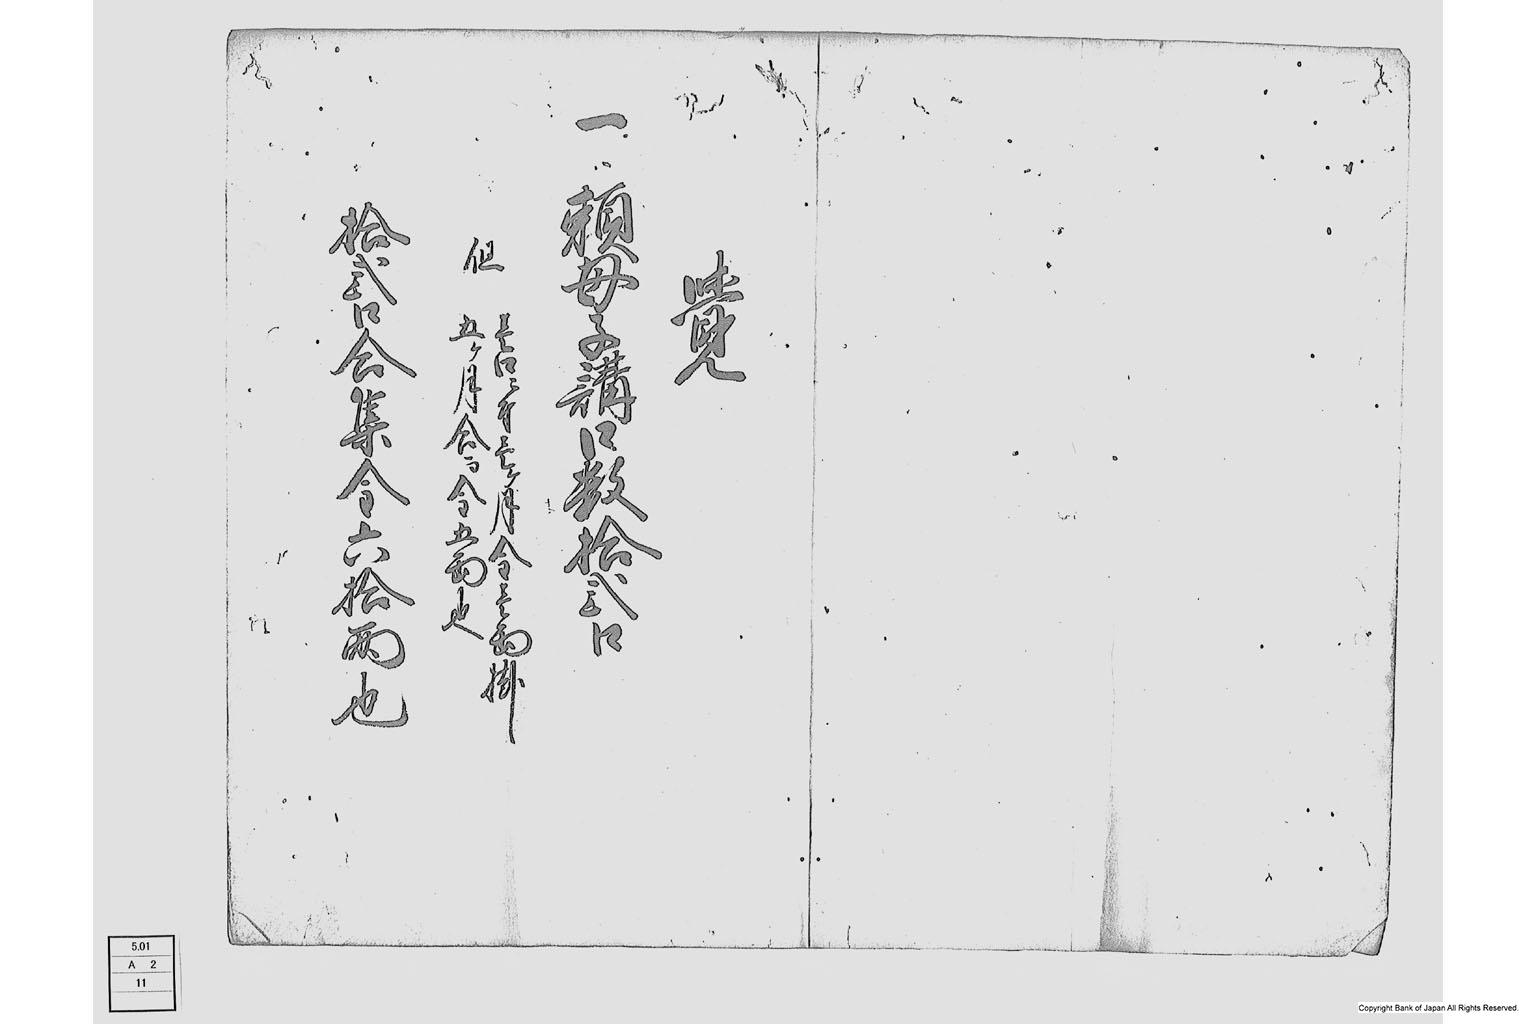 覺
一 頼母子講口数拾弐口
但 壱口ニ付壱ヶ月金壱両掛
五ヶ月合而金五両也
拾弐口合集金六拾両也
5.01
A 2
11
Copyright Bank of Japan All Rights Reserved.